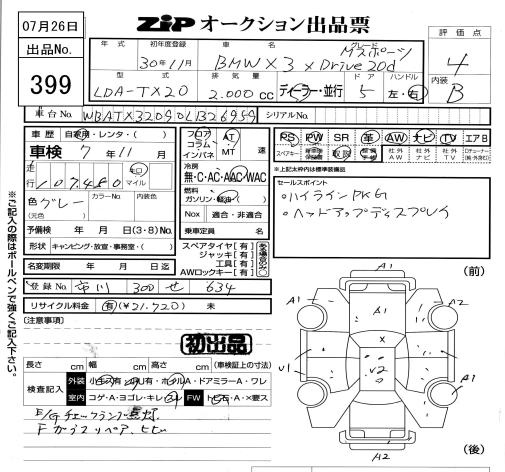 07月26日
出品No.
399
ZiP オークション出品票
年式 初年度登録 車名 グレード
30年11月 BMW X3 xDrive20d Mスポーツ
型式 排気量 ドア ハンドル
LDA-TX20 2.000 cc ディーラー・並行 5 左・右
評価点
4
内装
B
車台No. シリアルNo.
車歴 自家用・レンタ・( )
車検 7年11月
走行 107,480 キロ マイル
色 グレー カラーNo. 内装色
(元色)
予備検 年 月 日(3・8)No.
形状 キャンピング・放宣・事務室・( )
名変期限 年 月 日迄
フロア コラム インパネ AT MT 速
冷房
無・C・AC・AAC・WAC
燃料
ガソリン・軽油・( )
Nox 適合・非適合
乗車定員 名
スペアタイヤ【有】
ジャッキ【有】
工具【有】
AWロックキー【有】
PS PW SR 革 AW ナビ TV エアB
スペアキー 取説 社外AW 社外ナビ 社外TV
*上記太枠内は標準装備品
セールスポイント
・ハイラインPKG
・ヘッドアップディスプレイ
登録No. 市川 300 せ 634
リサイクル料金 有(¥21,720) 未
(注意事項)
初出品
長さ cm 幅 cm 高さ cm (車検証上の寸法)
検査記入 外装 小キズ有・小U有・ホイルA・ドアミラーA・ワレ
室内 コゲ・A・ヨゴレ・キレ FW トビ石・A・×要ス
E/Gチェックランプ点灯
Fガラスリペア、ヒビ
※ご記入の際はボールペンで強くご記入下さい。
(前)
A1
A1 A1 A2
X
U1 U2
A1
A2
(後)